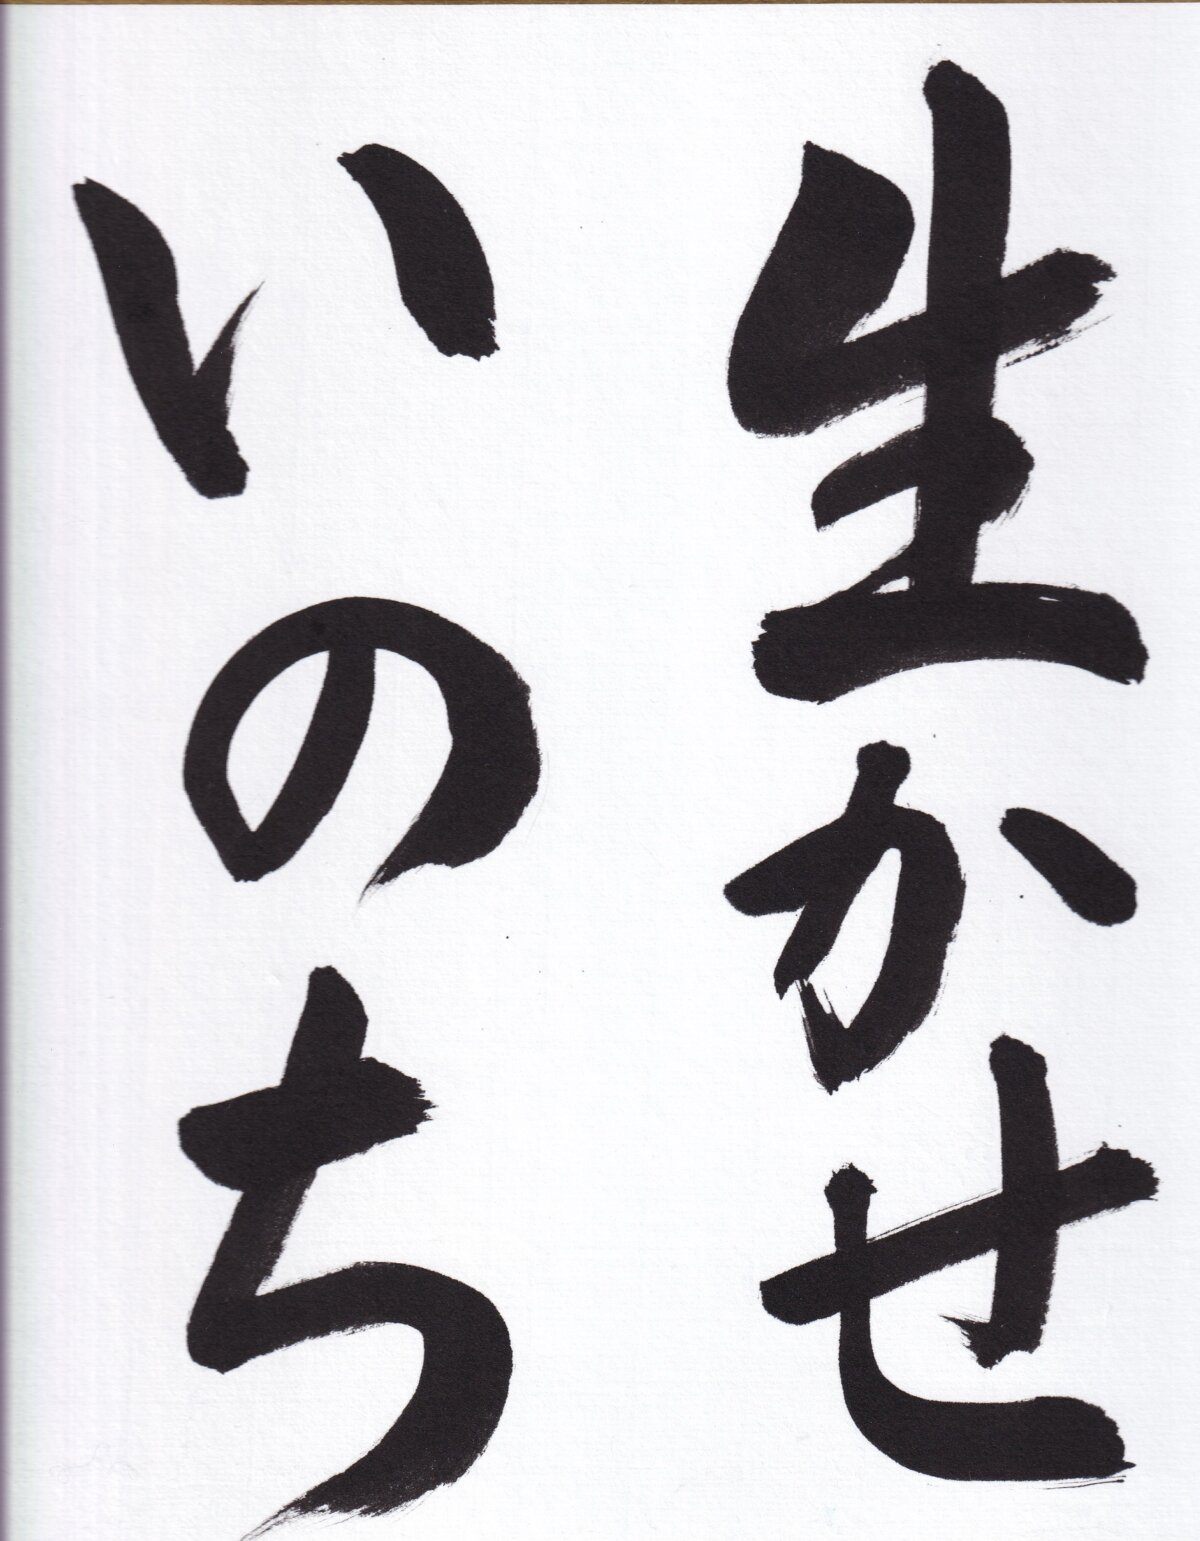 生かせ
いのち